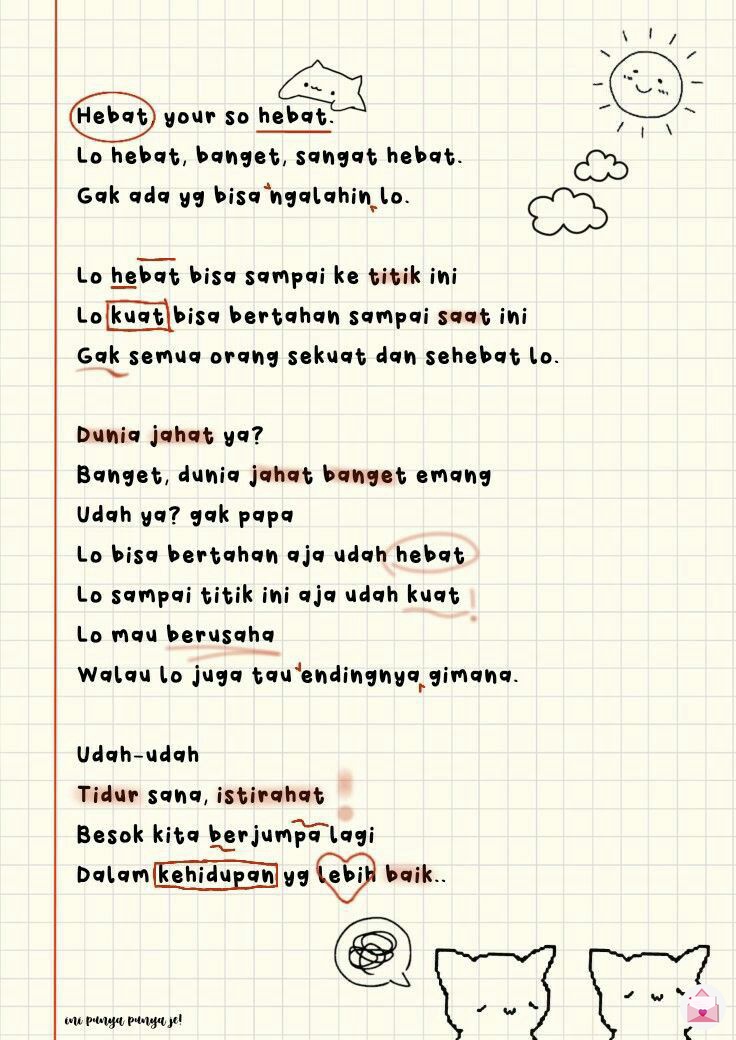 Hebat your so hebat.
Lo hebat, banget, sangat hebat.
Gak ada yg bisa ngalahin lo.
Lo hebat bisa sampai ke titik ini
Lo kuat bisa bertahan sampai saat ini
Gak semua orang sekuat dan sehebat lo.
Dunia jahat ya?
Banget, dunia jahat banget emang
Udah ya? gak papa
Lo bisa bertahan aja udah hebat
Lo sampai titik ini aja udah kuat !
Lo mau berusaha
Walau lo juga tau endingnya gimana.
Udah-udah
Tidur sana, istirahat !
Besok kita berjumpa lagi
Dalam kehidupan yg lebih baik..
ini punya punya je!